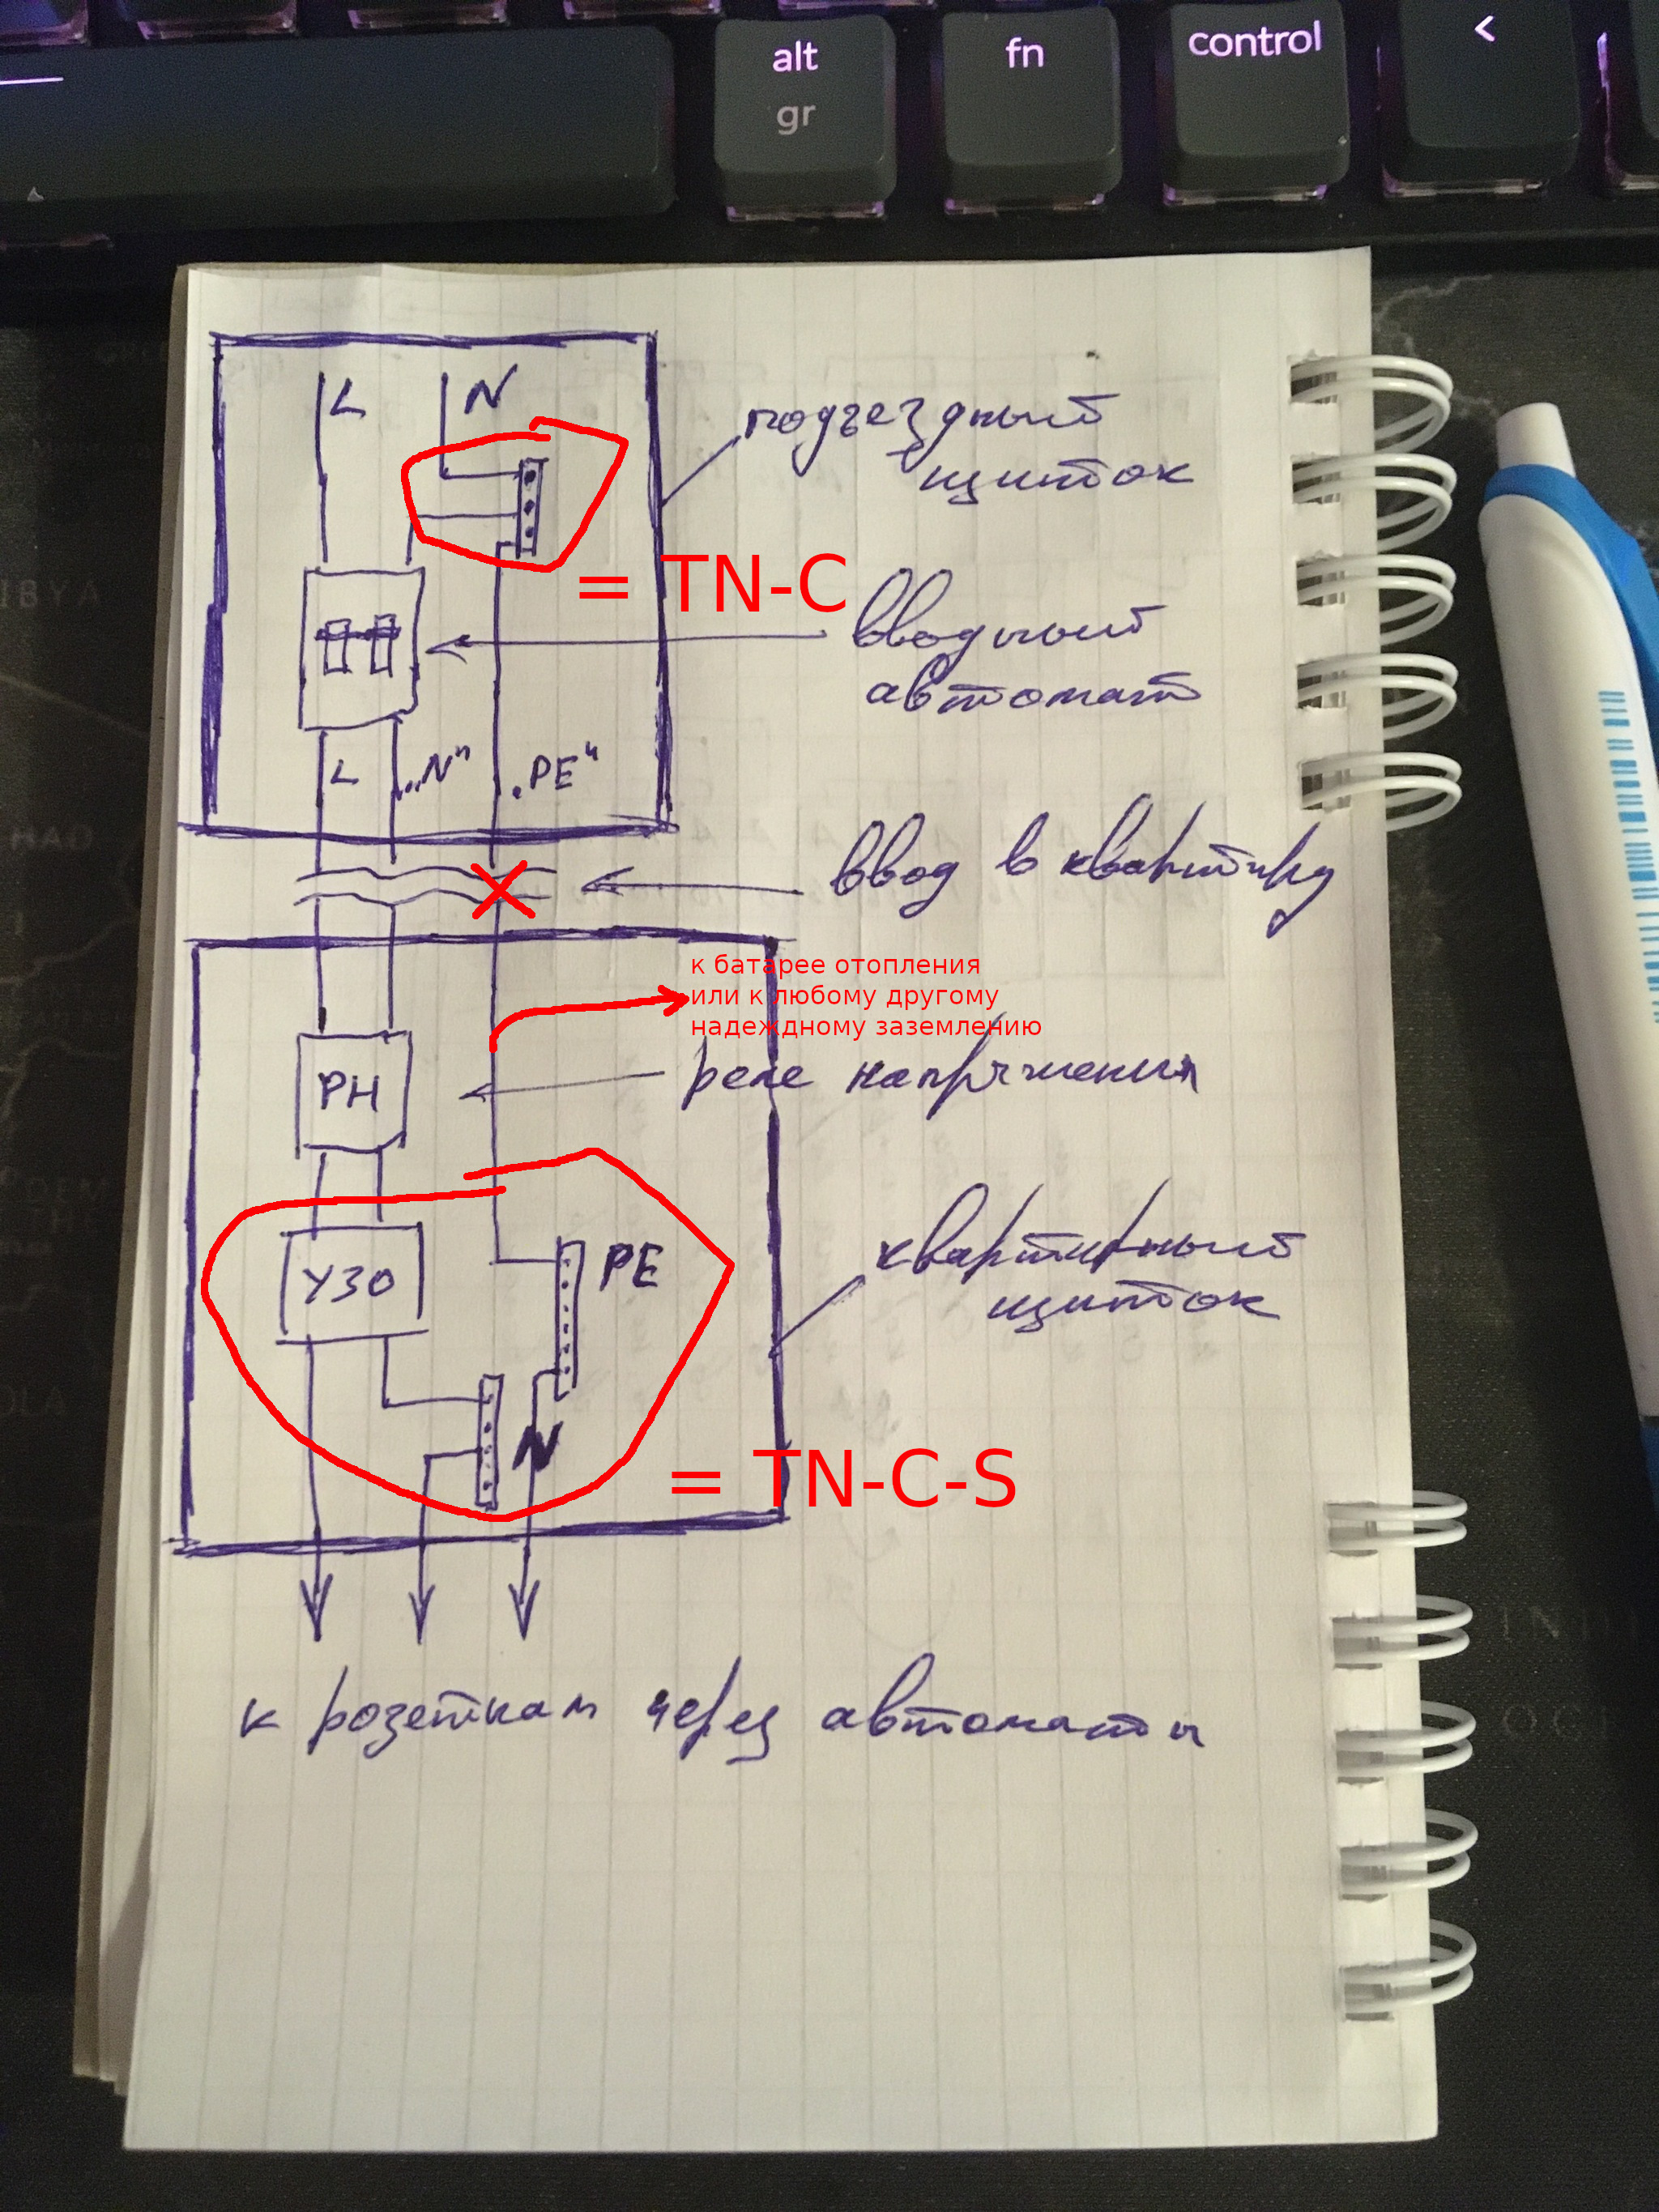 alt
gr
fn
control
<
L
N
подъездный
щиток
= TN-C
вводный
автомат
L
„N"
„PE"
ввод в квартиру
к батарее отопления
или к любому другому
надеждному заземлению
РН
реле напряжения
УЗО
PE
квартирный
щиток
N
= TN-C-S
к розеткам через автоматы
IBYA